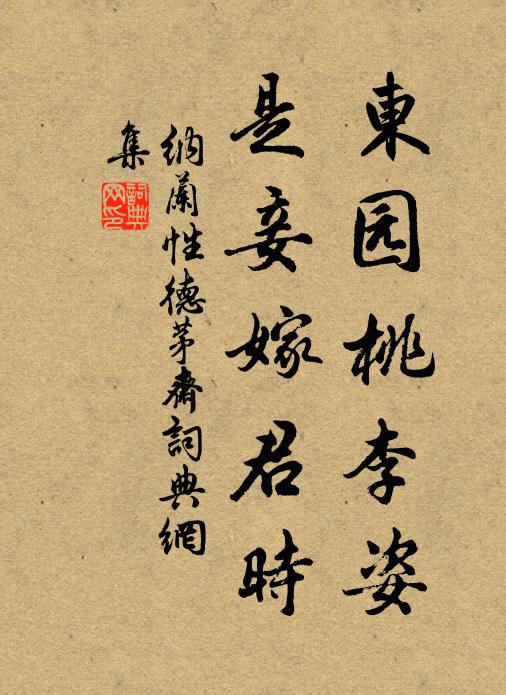 東园桃李姿
是妾嫁君時
纳蘭性德茅齋詞典網
集
詞典网印